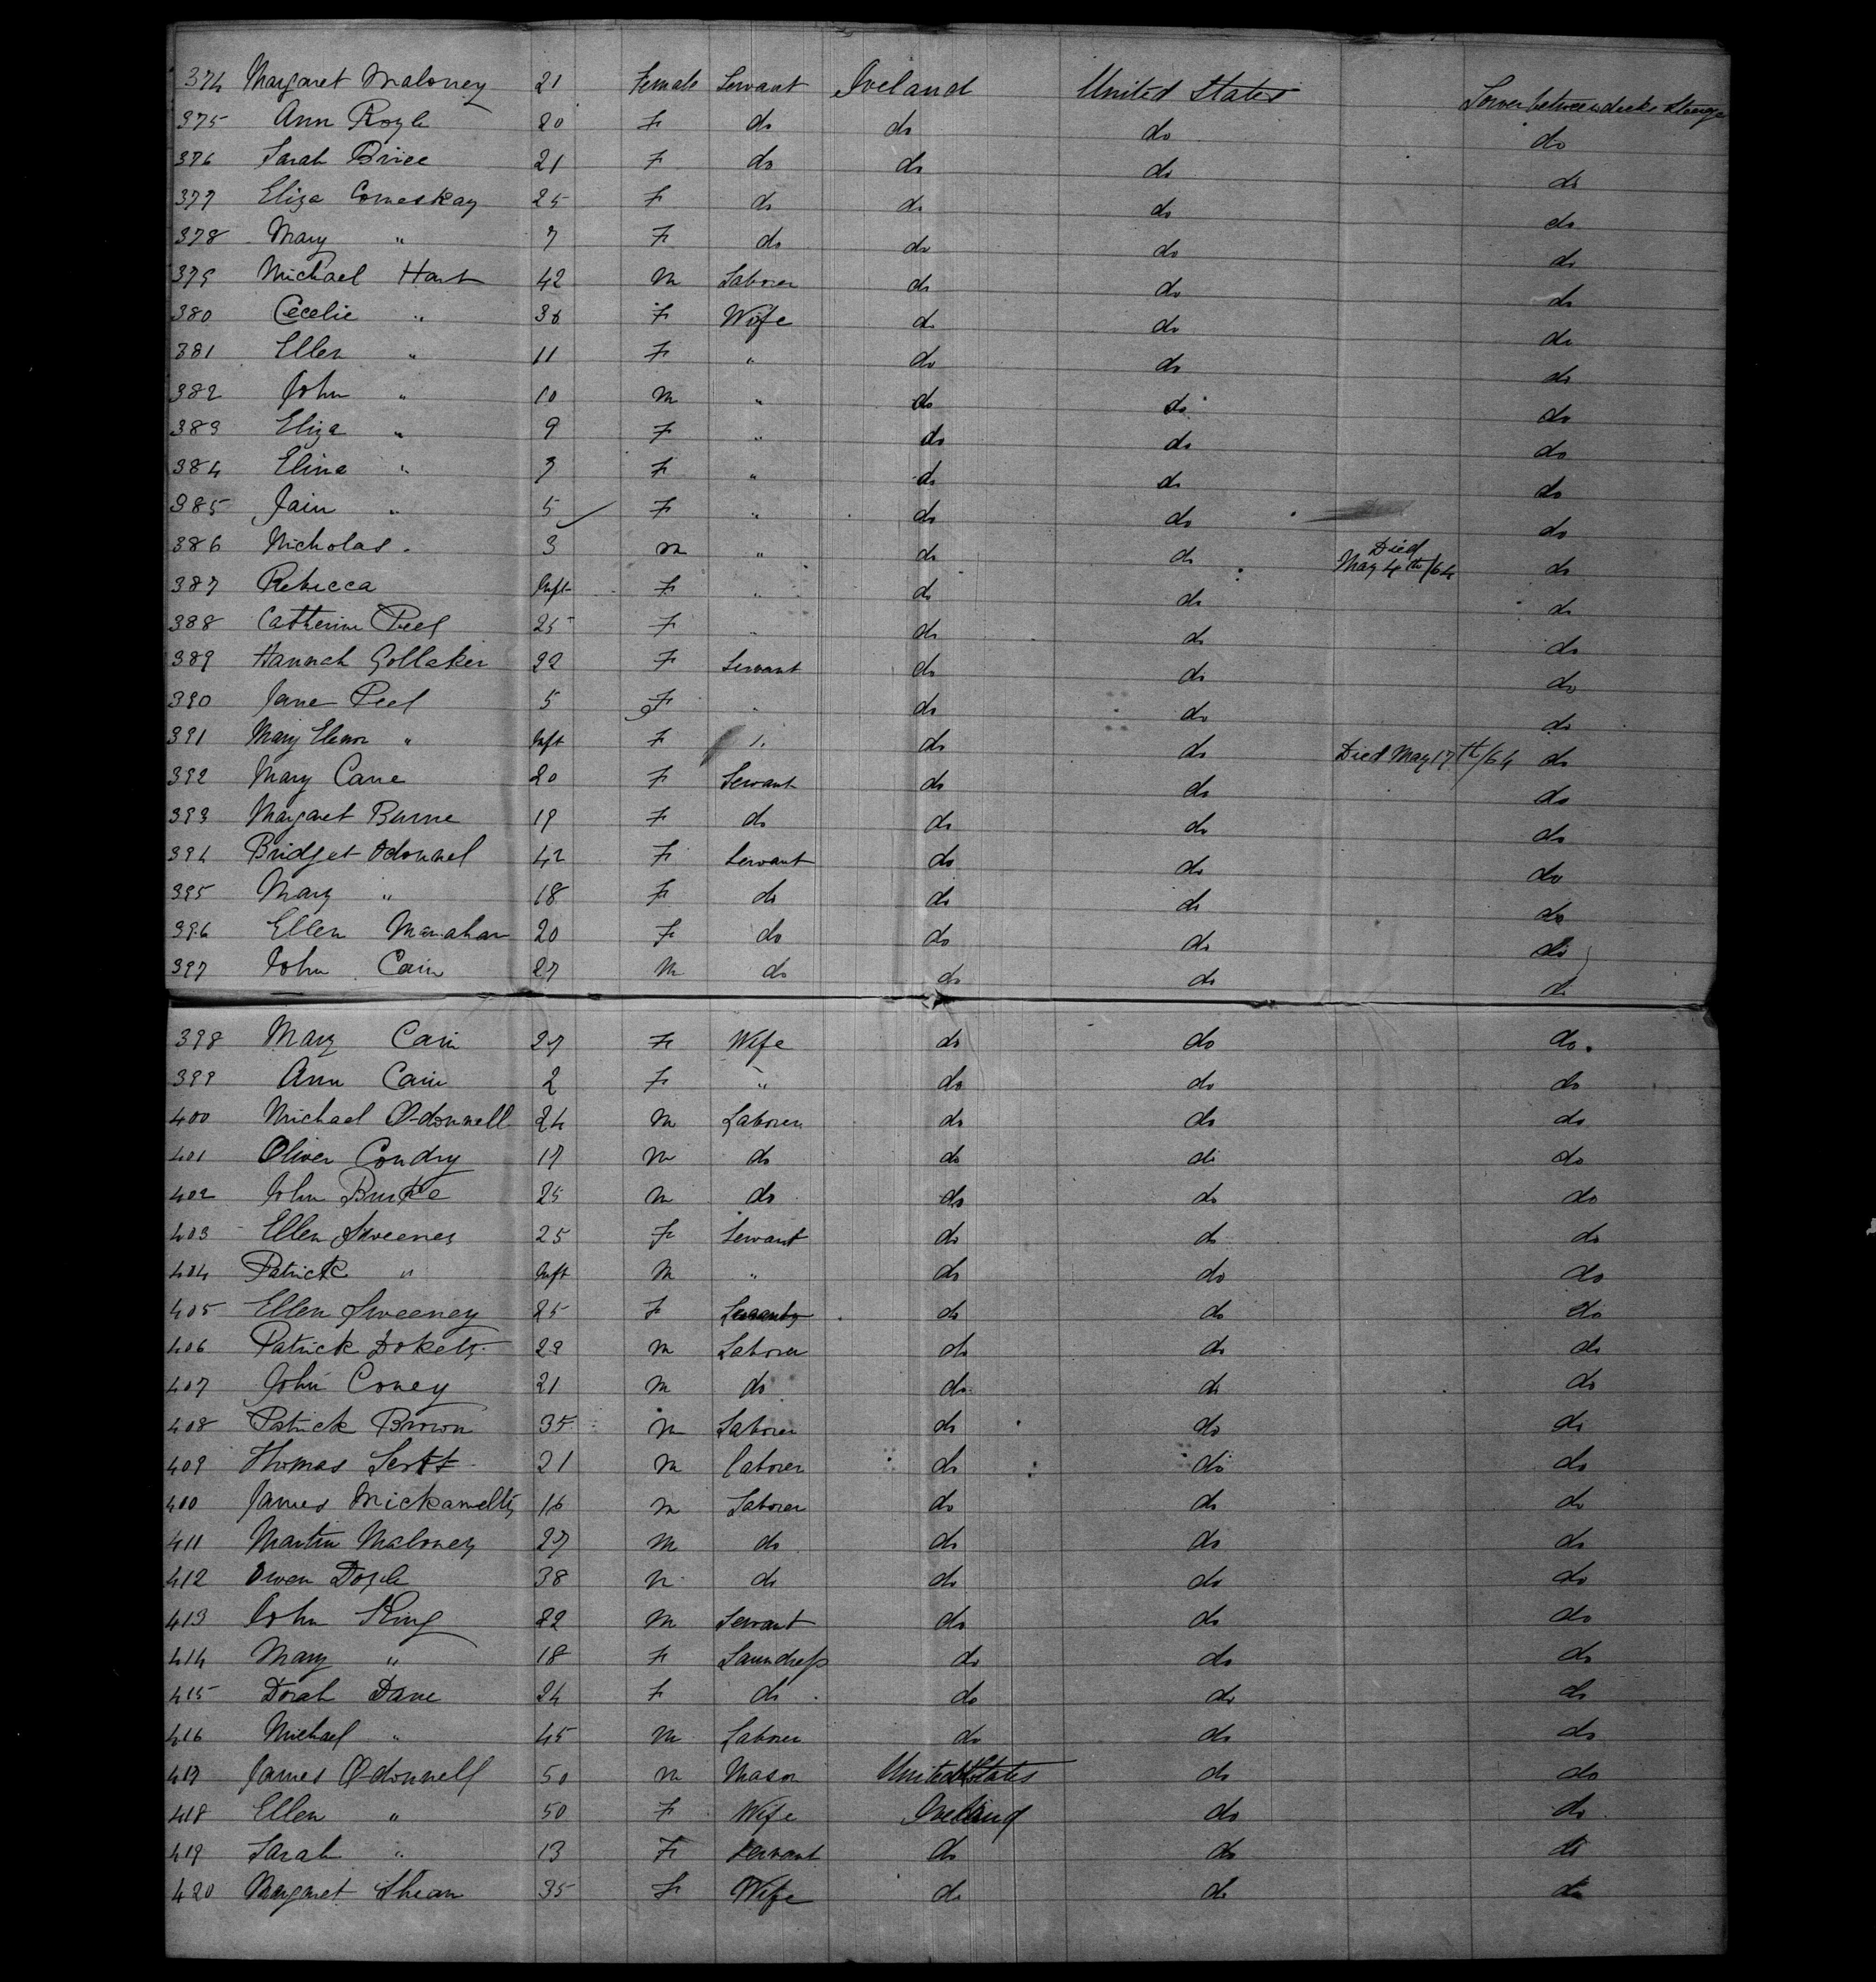 374 Margaret Maloney 21 Female Servant Ireland United States Lower between decks Steerage
375 Ann Royle 20 F do do do do
376 Sarah Brice 21 F do do do do
377 Eliza Comeskay 25 F do do do do
378 Mary " 7 F do do do do
379 Michael Hart 42 M Laborer do do do
380 Cecelie " 36 F Wife do do do
381 Ellen " 11 F " do do do
382 John " 10 M " do do do
383 Eliza " 9 F " do do do
384 Elina " 7 F " do do do
385 Jain " 5 F " do do do
386 Nicholas " 3 M " do do Died May 4th/64 do
387 Rebecca Inft F " do do do
388 Catherine Peel 25 F " do do do
389 Hannah Gollaker 22 F Servant do do do
390 Jane Peel 5 F " do do do
391 Mary Elenor " Inft F " do do Died May 17th/64 do
392 Mary Cane 20 F Servant do do do
393 Margaret Burne 19 F do do do do
394 Bridget Odonnel 42 F Servant do do do
395 Mary " 18 F do do do do
396 Ellen Manahan 20 F do do do do
397 John Cain 27 M do do do do
398 Mary Cain 27 F Wife do do do
399 Ann Cain 2 F " do do do
400 Michael O-donnell 24 M Laborer do do do
401 Oliver Condry 17 M do do do do
402 John Burke 25 M do do do do
403 Ellen Sweeney 25 F Servant do do do
404 Patrick " Inft M " do do do
405 Ellen Sweeney 25 F do do do
406 Patrick Dokety 23 M Laborer do do do
407 John Coney 21 M do do do do
408 Patrick Brown 35 M Laborer do do do
409 Thomas 21 M laborer do do do
410 James 16 M Laborer do do do
411 Martin Maloney 27 M do do do do
412 Owen Doyle 38 M do do do do
413 John King 22 M Servant do do do
414 Mary " 18 F Laundress do do do
415 Dorah Dane 24 F do do do do
416 Michael " 45 M Laborer do do do
417 James O-donnell 50 M Mason United States do do
418 Ellen " 50 F Wife Ireland do do
419 Sarah " 13 F Servant do do do
420 Margaret Shean 35 F Wife do do do